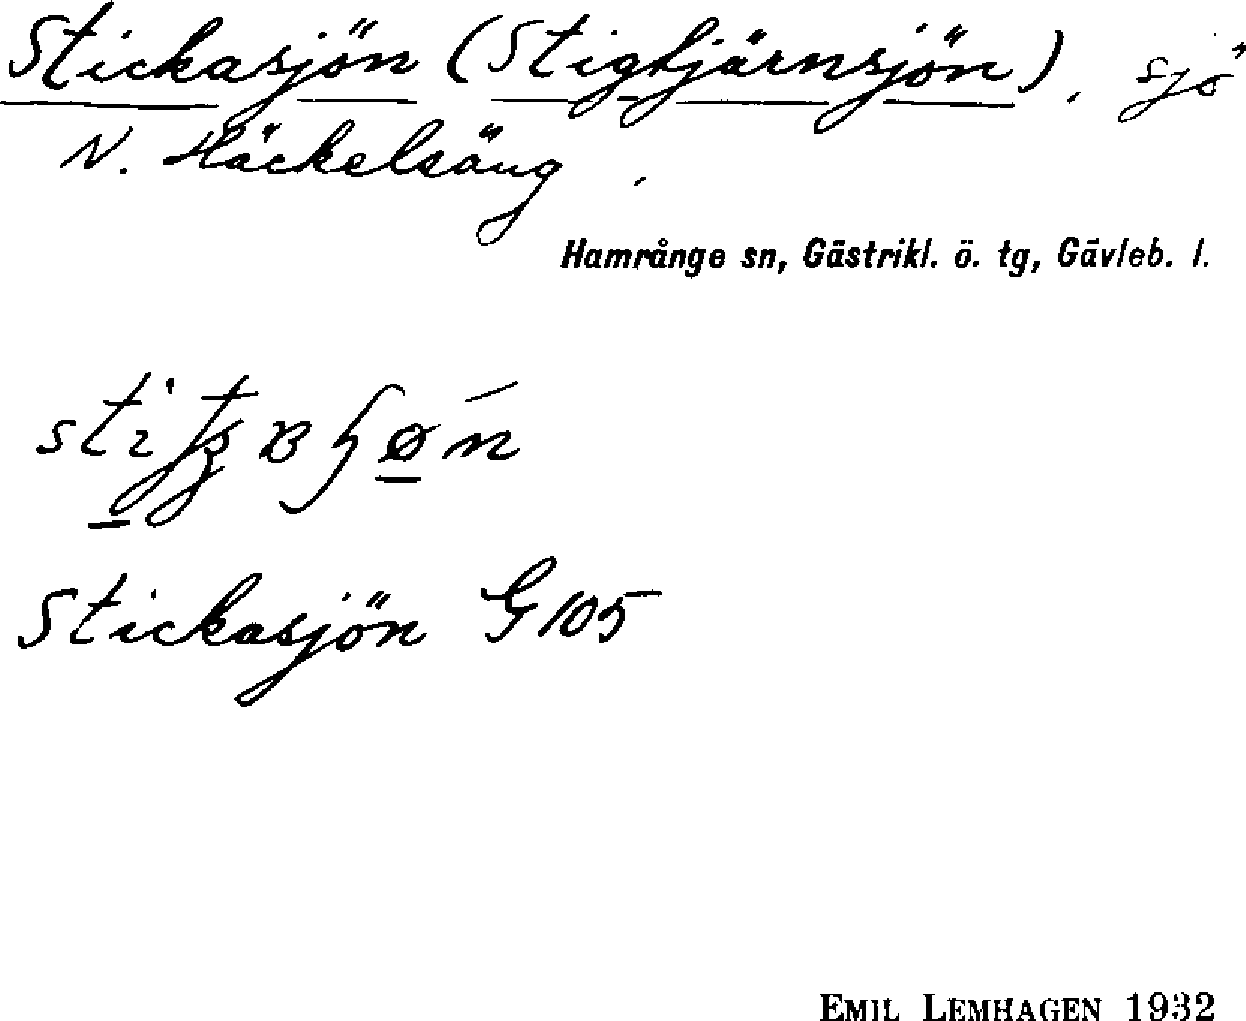 Stickasjön (Stigtjärnsjön), sjö
N. Häckelsäng.
Hamrånge sn, Gästrikl. ö. tg, Gävleb. l.
Stickasjön G 105
EMIL LEMHAGEN 1932